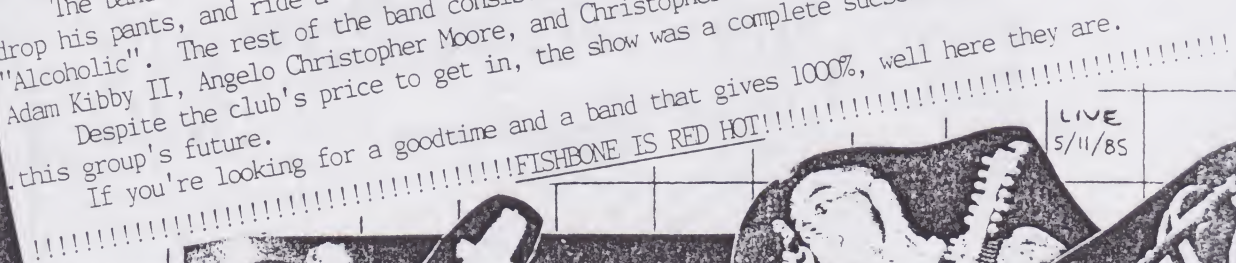 The
drop his pants, and ride a
"Alcoholic". The rest of the band
Adam Kibby II, Angelo Christopher Moore, and
Despite the club's price to get in, the show was a complete
this group's future.
If you're looking for a goodtime and a band that gives 1000%, well here they are.
!!!!!!!!!!!!!!!!!!!!!!!!!!!!!!!!!!!!!!FISHBONE IS RED HOT!!!!!!!!!!!!!!!!!!!!!!!!!!!!!!!!!!!!!!
LIVE
5/11/85